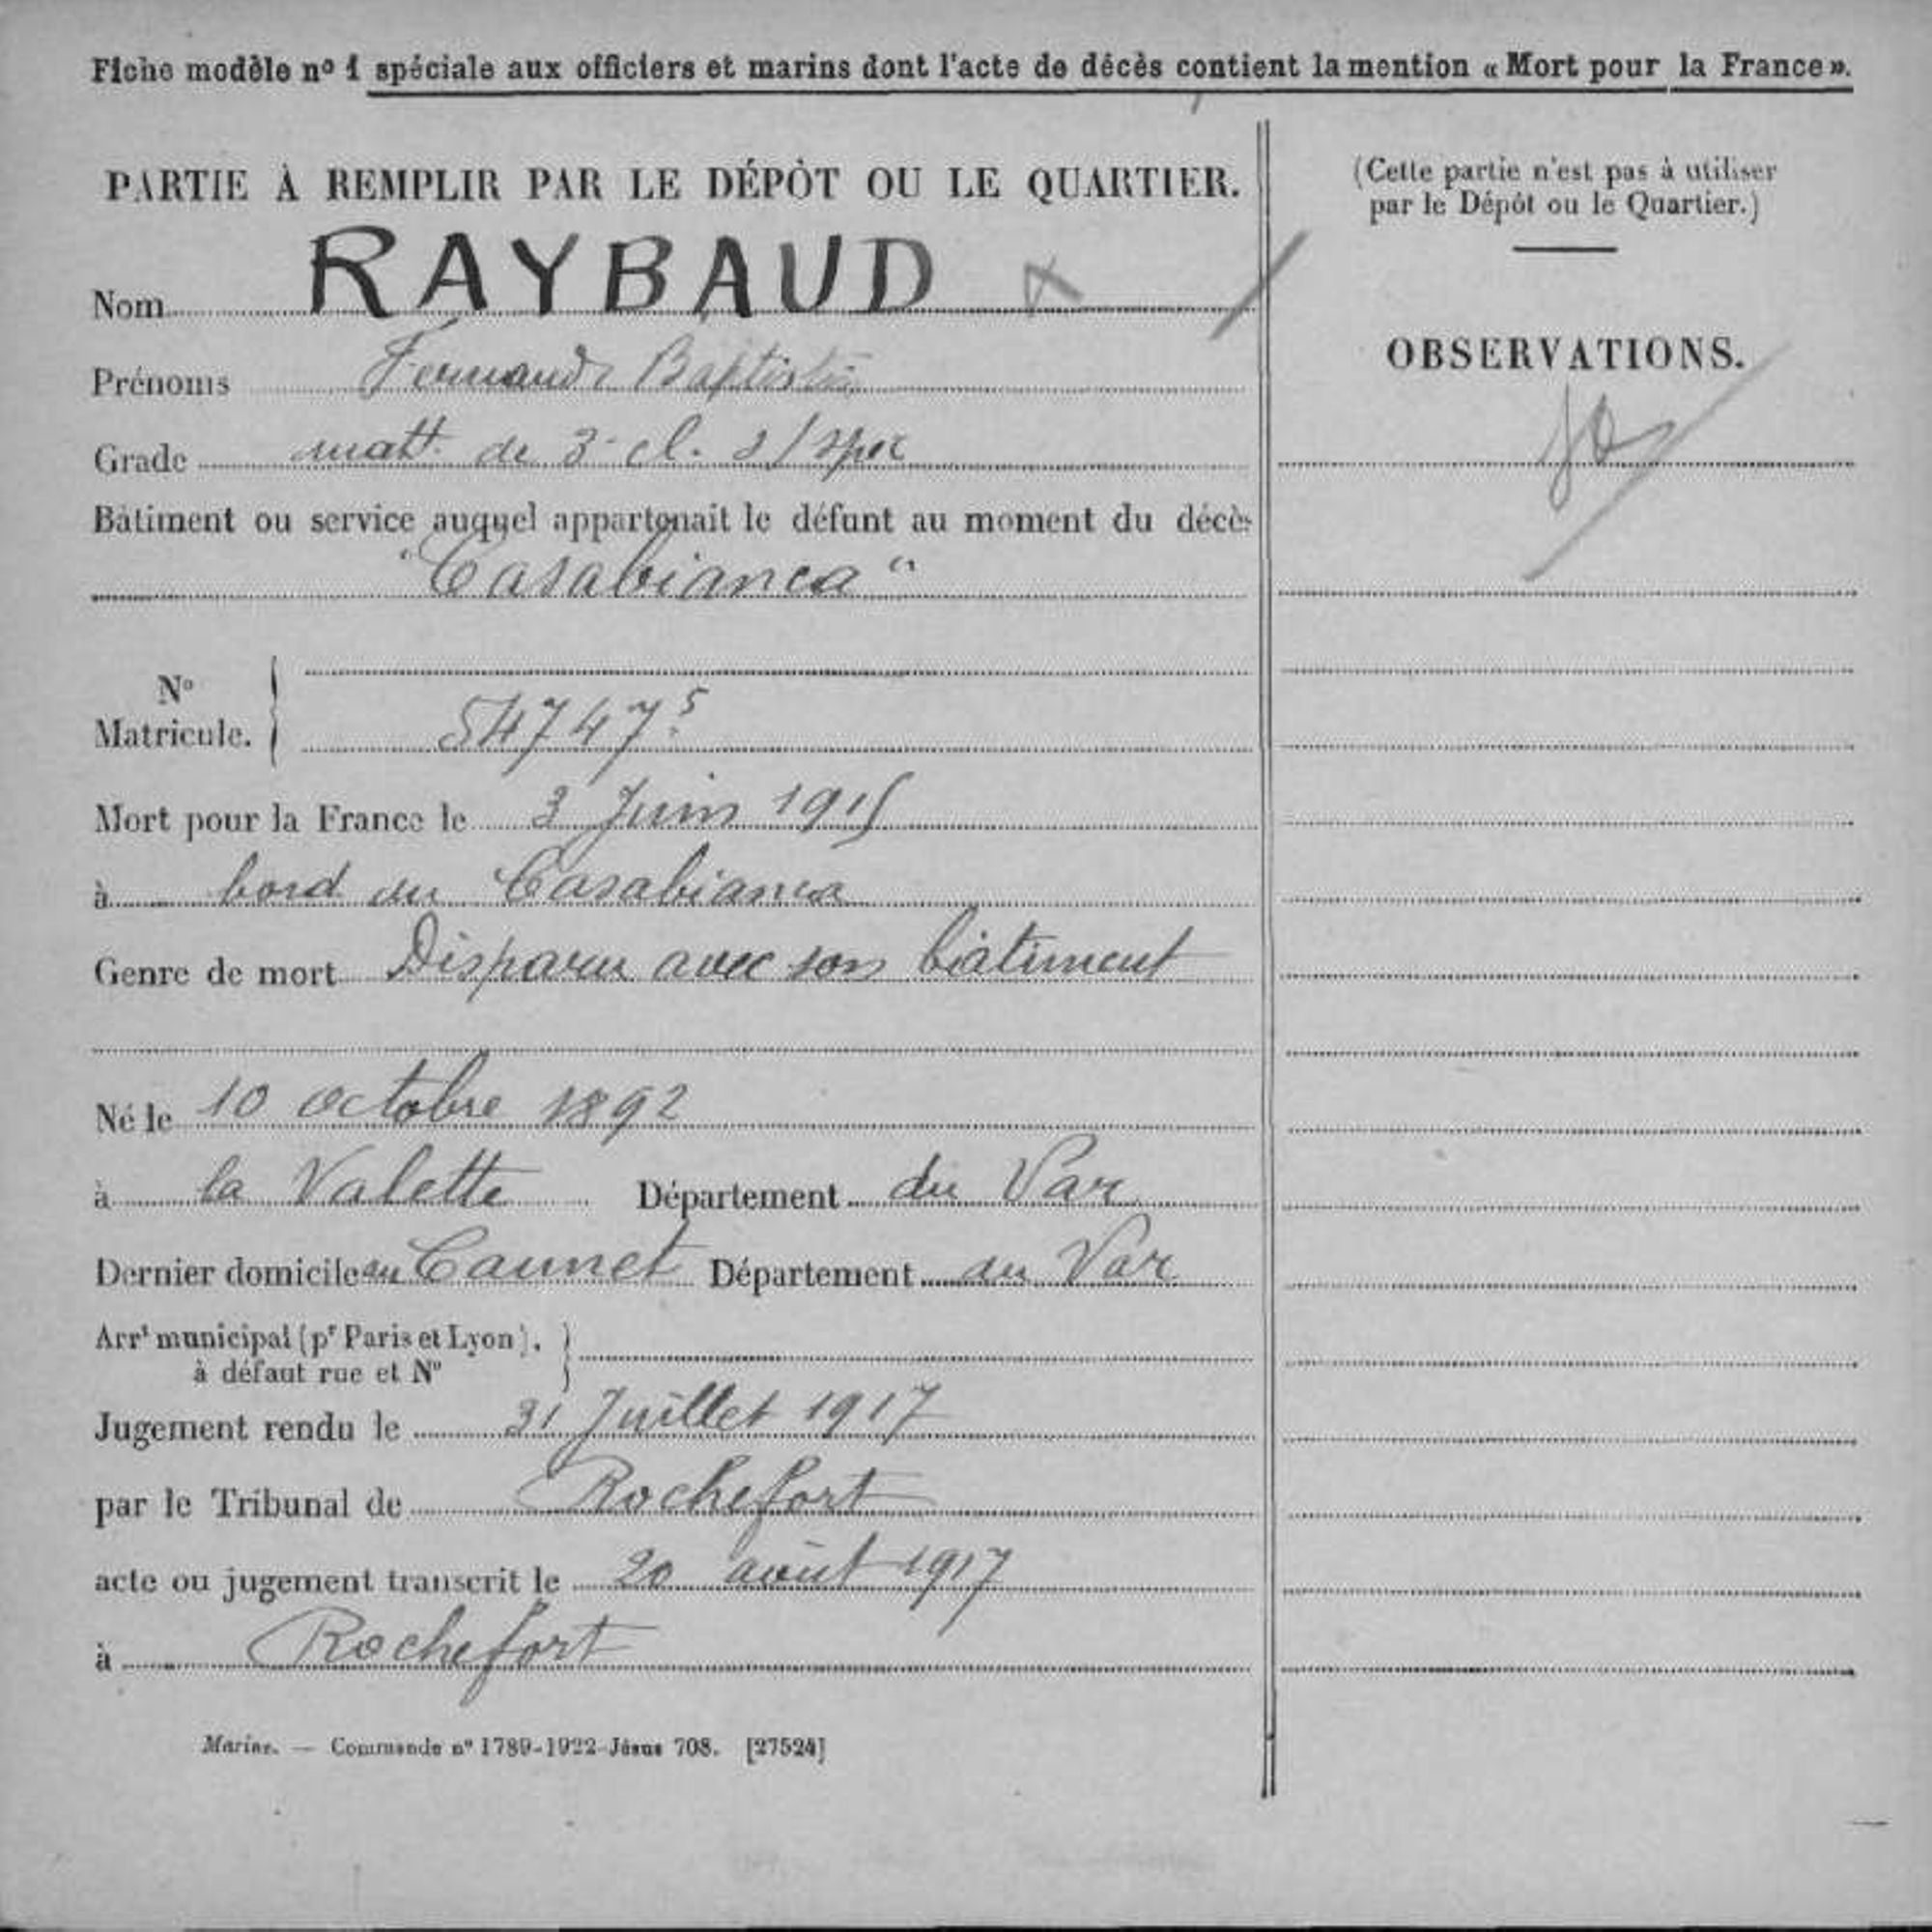 Fiche modèle nº 1 spéciale aux officiers et marins dont l'acte de décès contient la mention « Mort pour la France ».
PARTIE À REMPLIR PAR LE DÉPÔT OU LE QUARTIER.
Nom RAYBAUD
Prénoms Fernand Baptistin
Grade matt. de 3e cl. s/spec
Bâtiment ou service auquel appartenait le défunt au moment du décès
"Casabianca"
Nº
Matricule. } 54747 5
Mort pour la France le 3 Juin 1915
à bord du Casabianca
Genre de mort Disparu avec son bâtiment
Né le 10 octobre 1892
à la Valette Département du Var
Dernier domicile au Cannet Département du Var
Arrt municipal (pr Paris et Lyon), }
à défaut rue et Nº
Jugement rendu le 31 Juillet 1917
par le Tribunal de Rochefort
acte ou jugement transcrit le 20 août 1917
à Rochefort
Marine. — Commande nº 1789-1922 Jésus 708. [27524]
(Cette partie n'est pas à utiliser
par le Dépôt ou le Quartier.)
OBSERVATIONS.